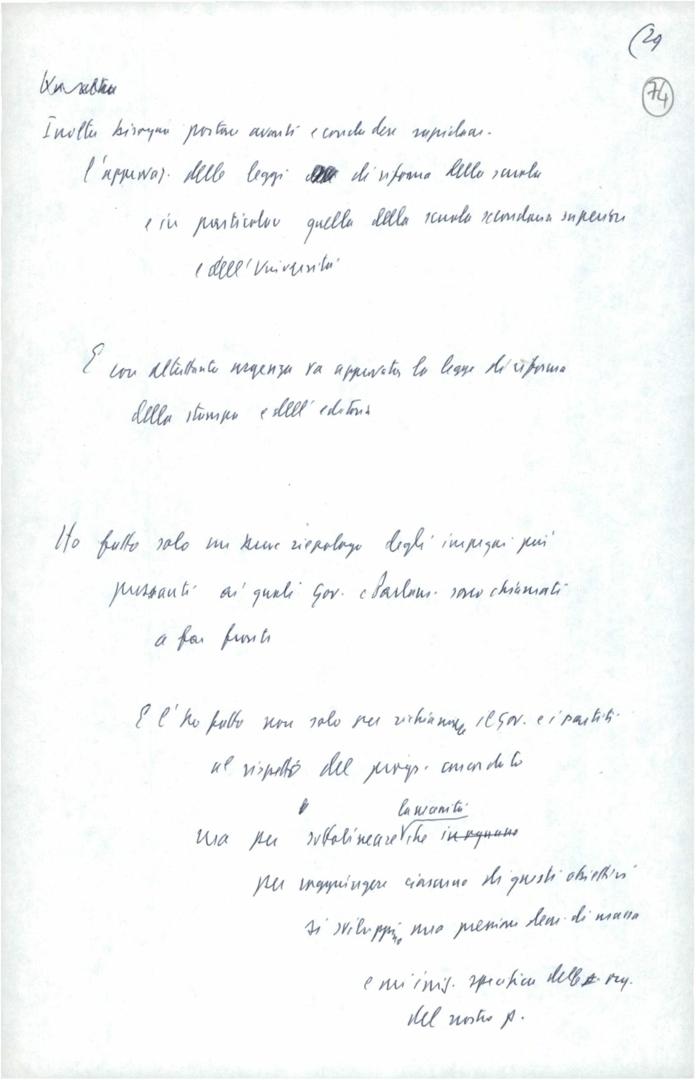 (29
74
Inoltre bisogna portare avanti e concludere rapidam.
l'approvaz. delle leggi di riforma della scuola
e in particolare quella della scuola secondaria superiore
e dell'Università
E con altrettanta urgenza va approvata la legge di riforma
della stampa e dell'editoria
Ho fatto solo un breve riepilogo degli impegni più
pressanti ai quali Gov. e Parlam. sono chiamati
a far fronte
E l'ho fatto non solo per richiamare il Gov. e i partiti
al rispetto del progr. concordato
la necessità
ma per sottolineare che
per raggiungere ciascuno di questi obiettivi
si sviluppino una pressione dem. di massa
e un'iniz. specifica delle org.
del nostro p.